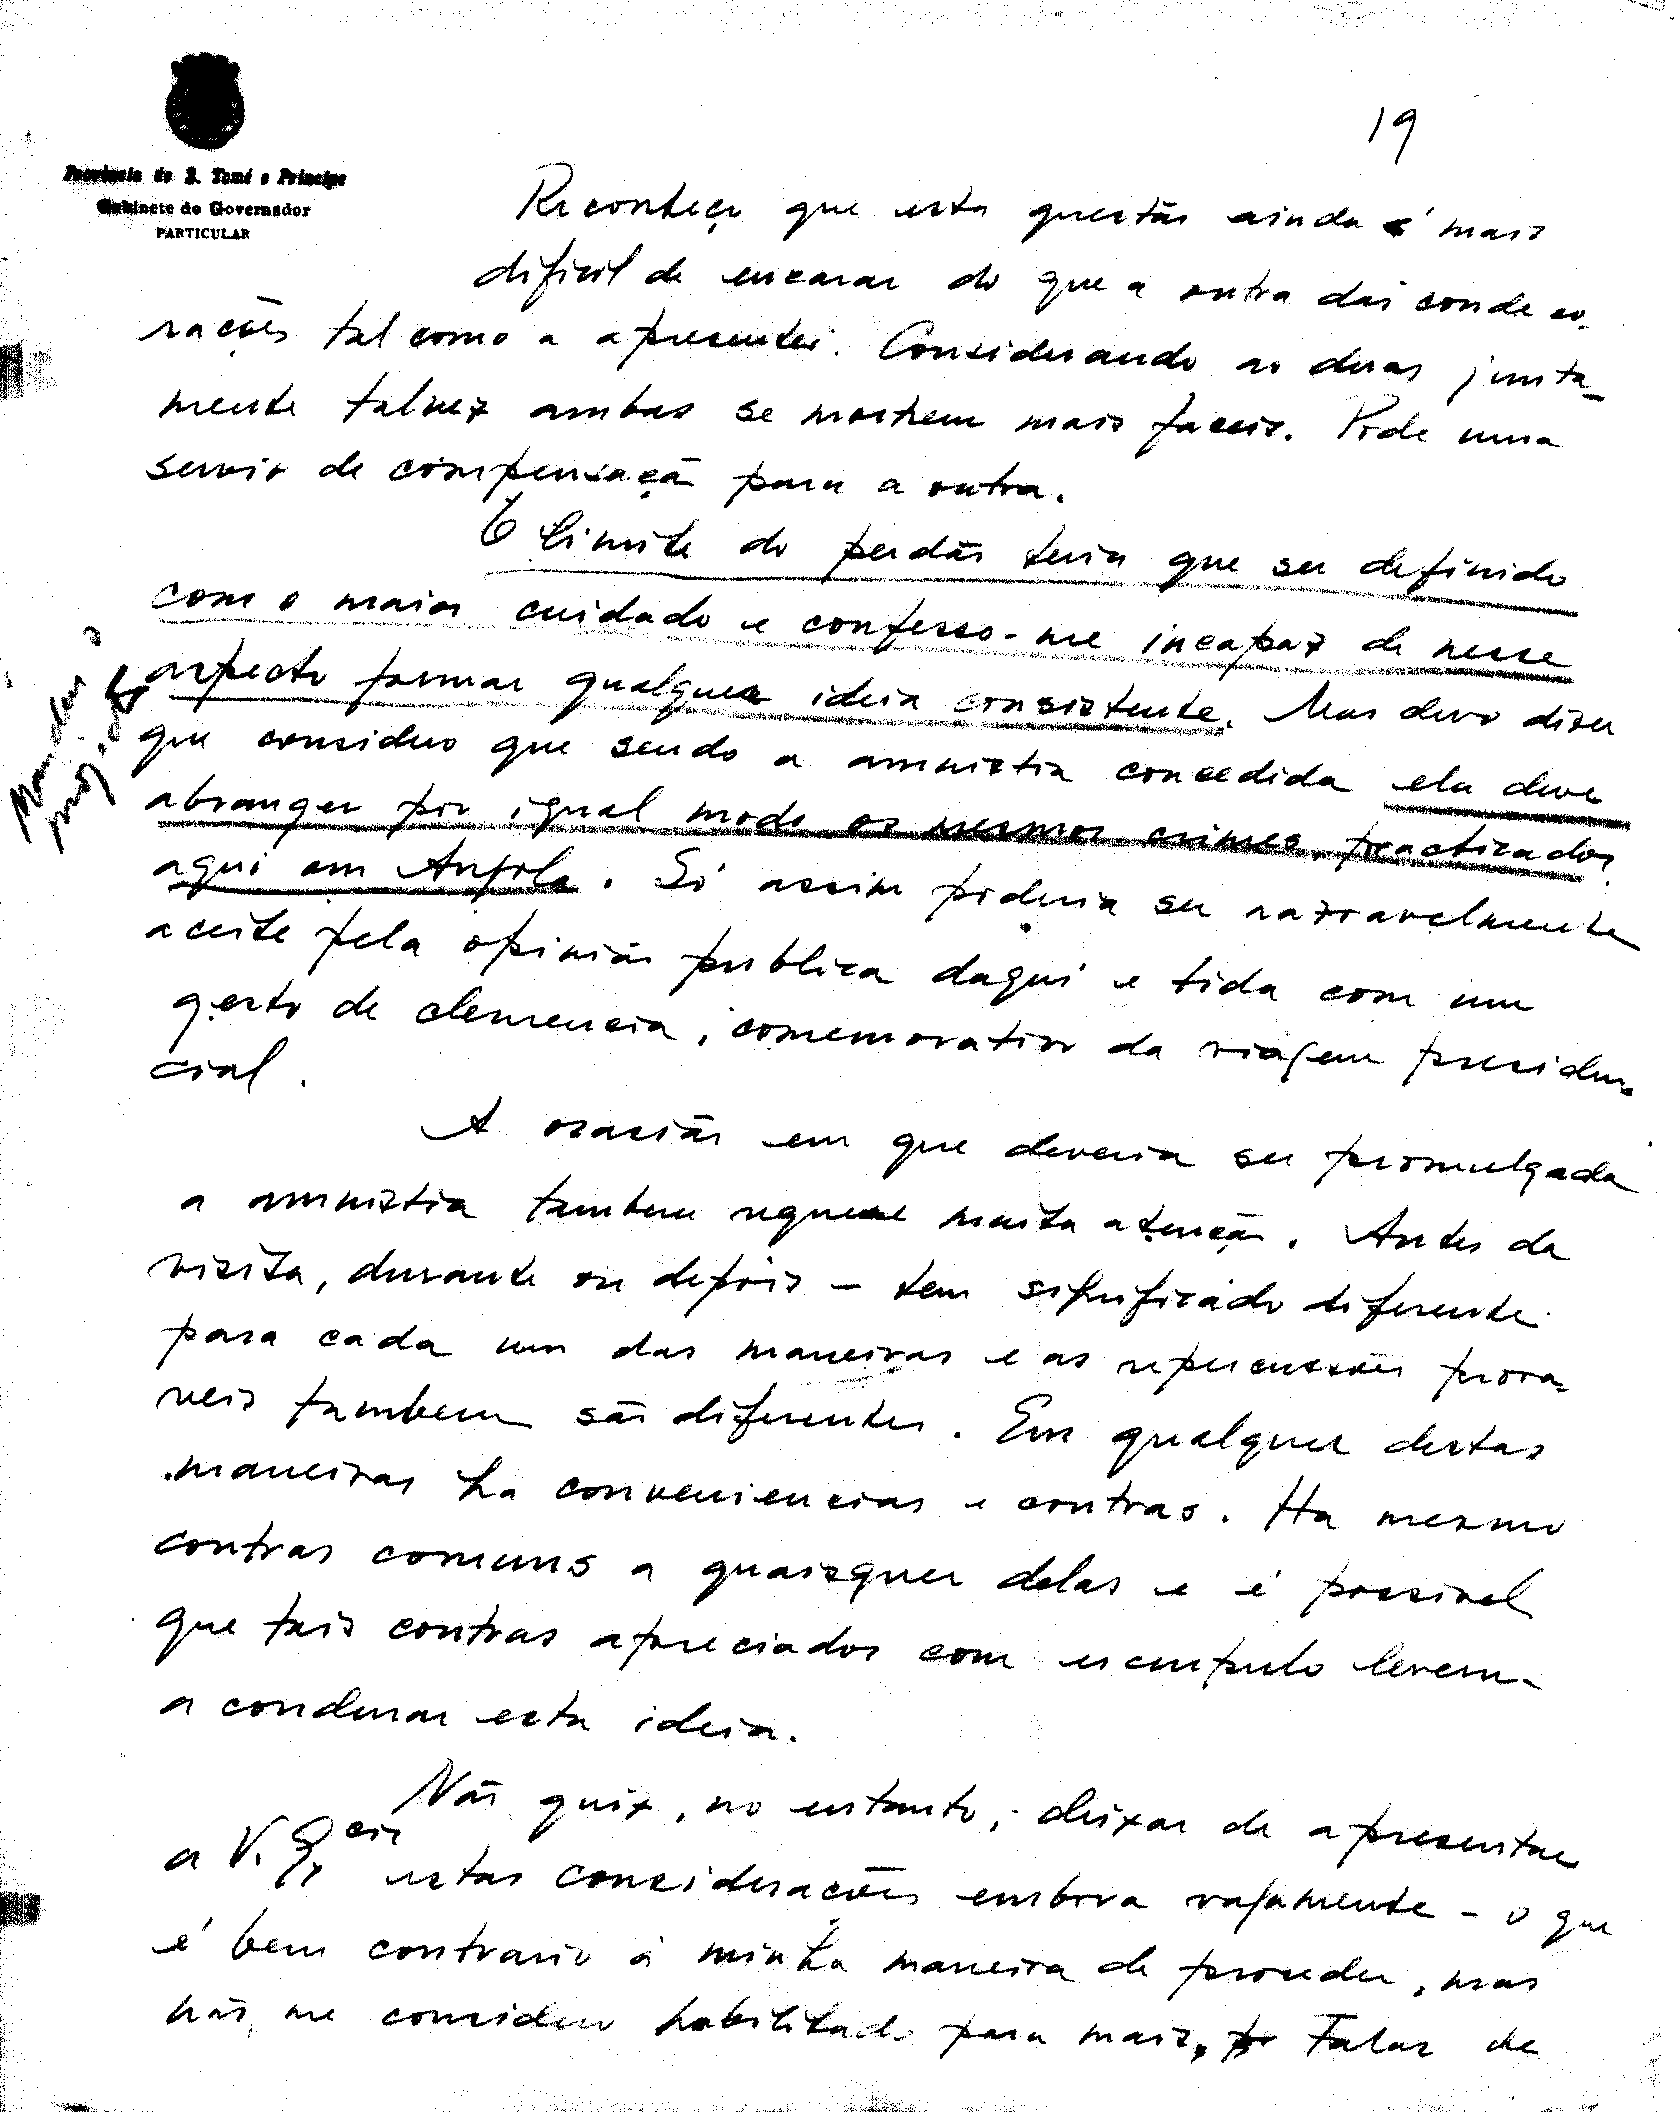 19
Provincia de S. Tomé e Principe
Gabinete do Governador
PARTICULAR
Reconheço que esta questão ainda é mais
dificil de encarar do que a outra das condeco-
rações tal como a apresentei. Considerando as duas junta-
mente talvez ambas se mostrem mais faceis. Pode uma
servir de compensação para a outra.
O limite do perdão teria que ser definido
com o maior cuidado e confesso-me incapaz de nesse
aspecto formar qualquer ideia consistente. Mas devo dizer
que considero que sendo a amnistia concedida ela deve
abranger por igual modo os mesmos crimes, practicados
aqui em Angola. Só assim poderia ser razoavelmente
aceite pela opinião publica daqui e tida com um
gesto de clemencia, comemorativo da viagem presiden-
cial.
A ocasião em que deveria ser promulgada
a amnistia tambem requere muita atenção. Antes da
visita, durante ou depois - tem significado diferente
para cada um das maneiras e as repercussões prova-
veis tambem são diferentes. Em qualquer destas
maneiras ha conveniencias e contras. Ha mesmo
contras comuns a quaisquer delas e é possivel
que tais contras apreciados com escrupulo levem
a condenar esta ideia.
Não quiz, no entanto, deixar de apresentar
a V. Ex.cia estas considerações embora vagamente - o que
é bem contrario á minha maneira de proceder, mas
não me considero habilitado para mais. Falar de